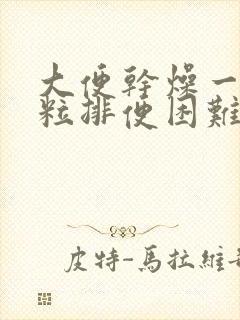 大便幹燥一
粒排便困難
皮特-馬拉維